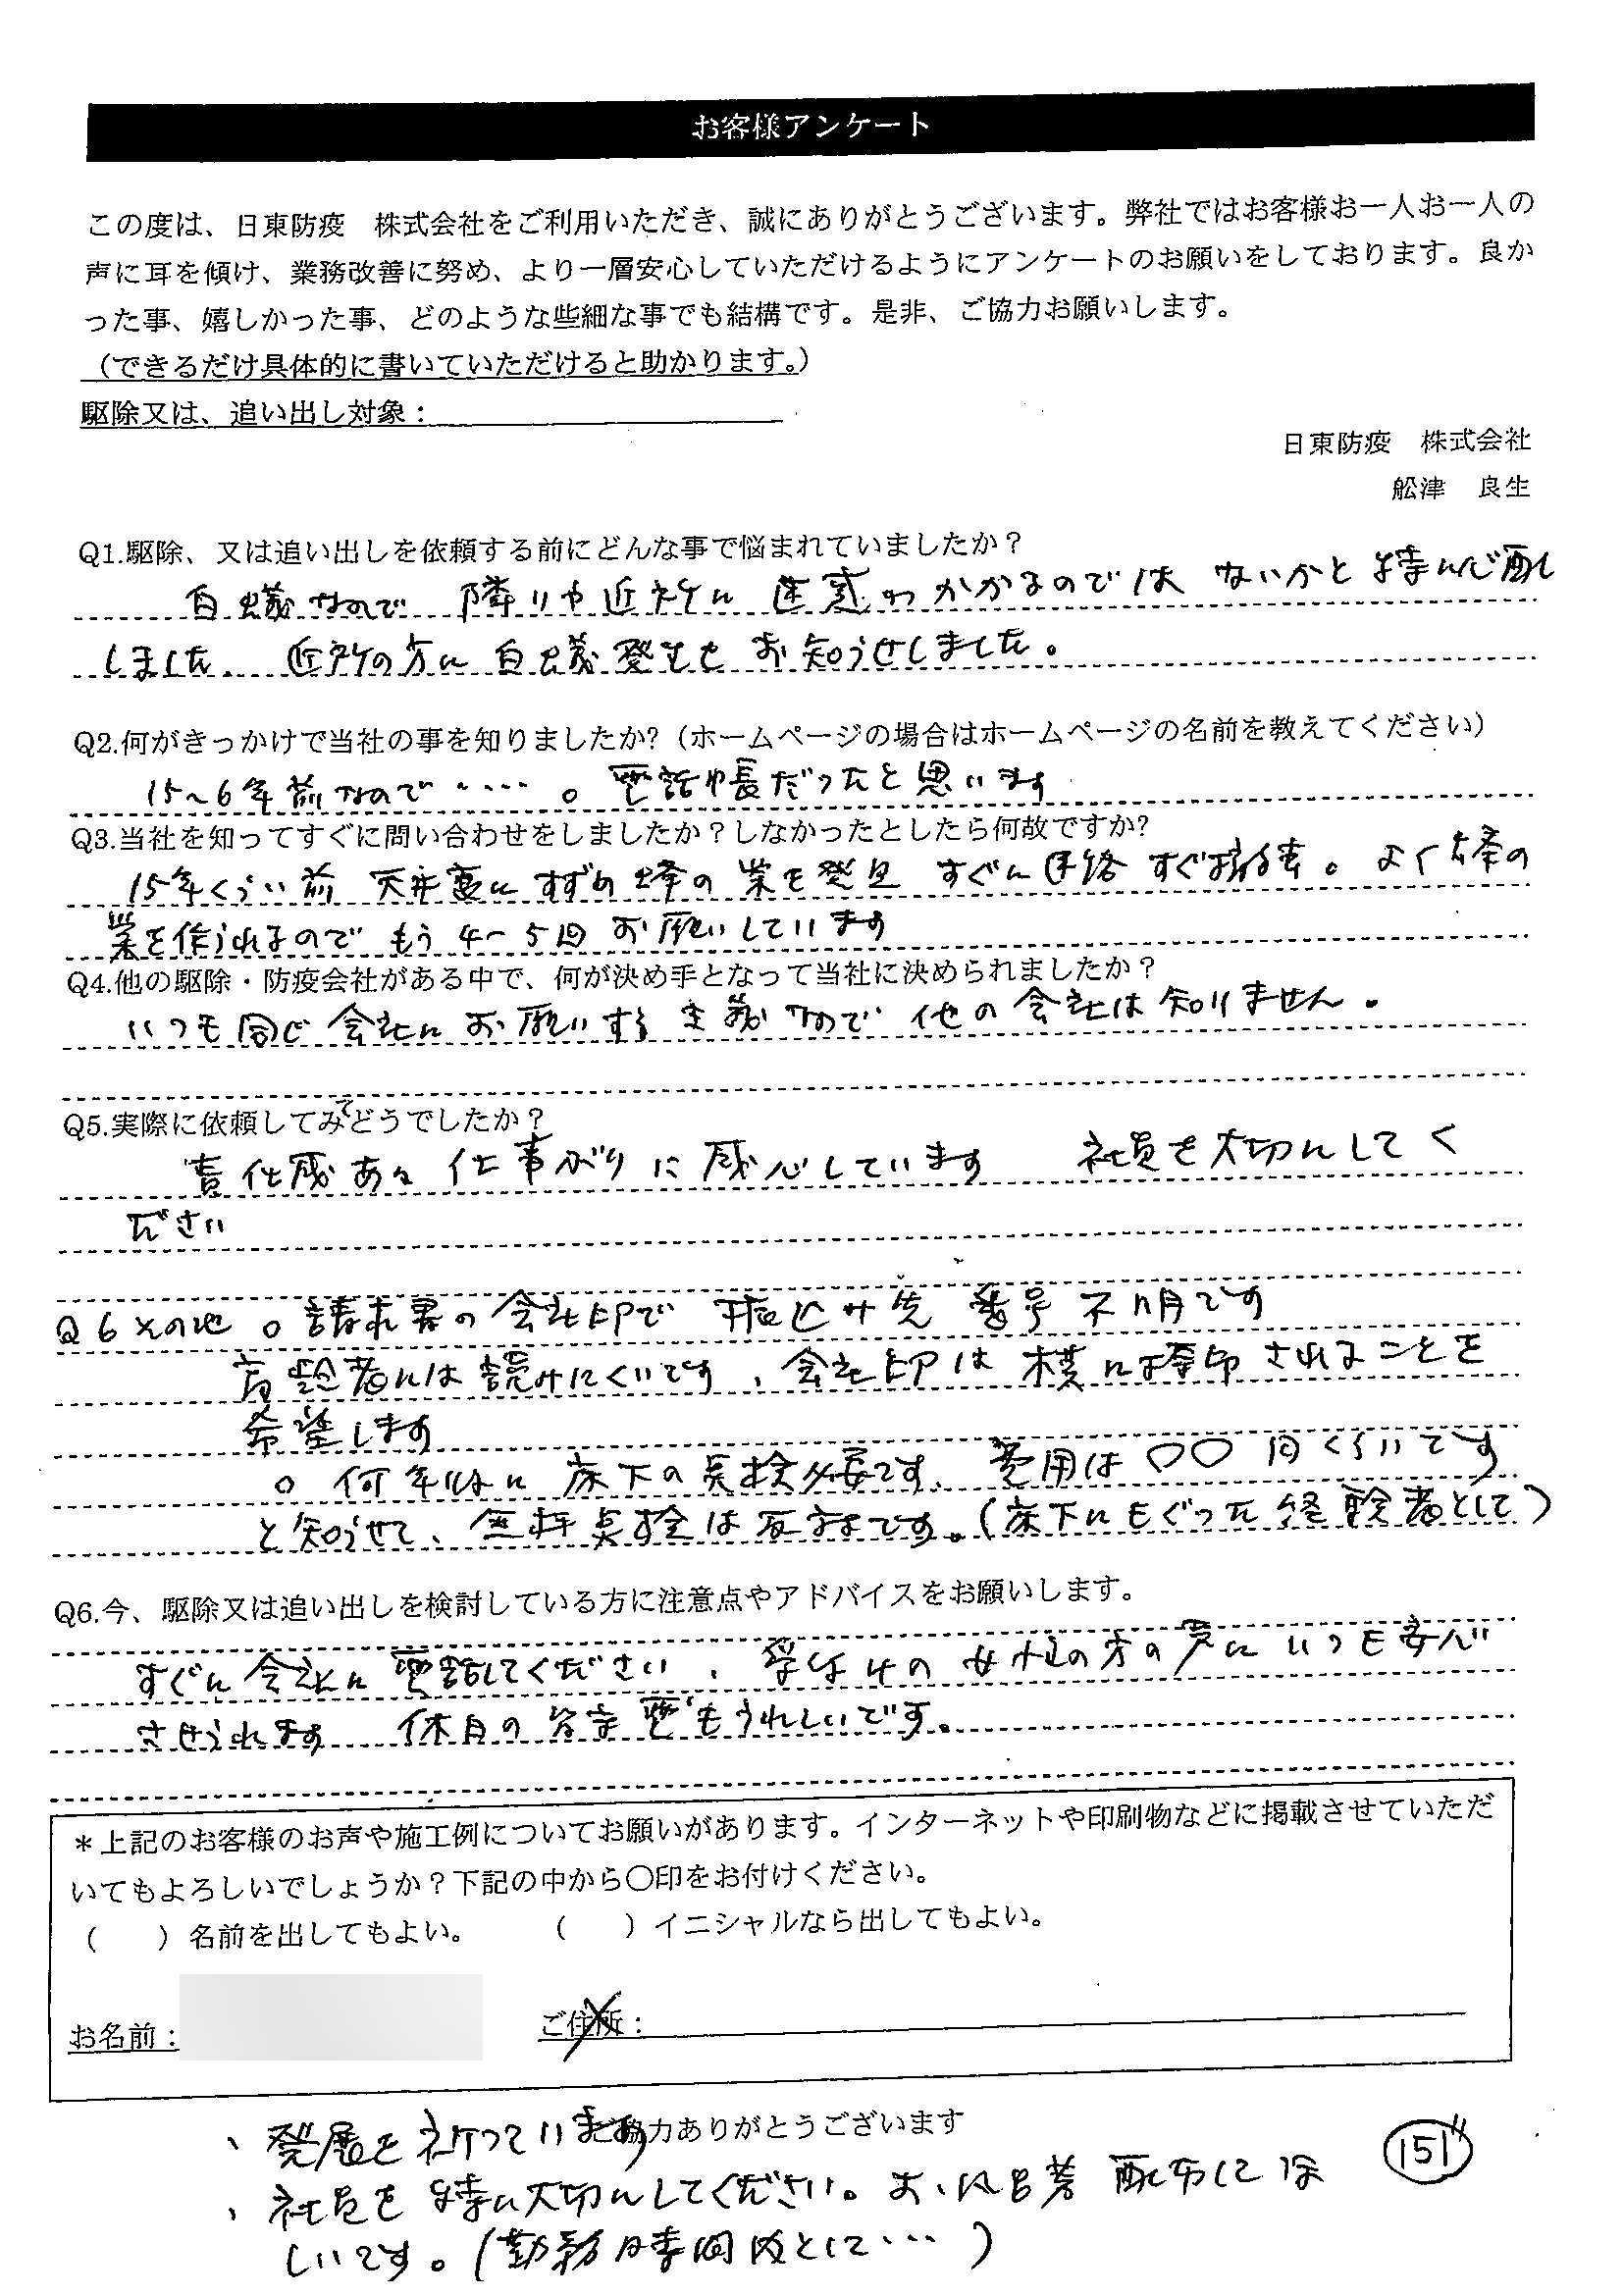 お客様アンケート
この度は、日東防疫　株式会社をご利用いただき、誠にありがとうございます。弊社ではお客様お一人お一人の
声に耳を傾け、業務改善に努め、より一層安心していただけるようにアンケートのお願いをしております。良か
った事、嬉しかった事、どのような些細な事でも結構です。是非、ご協力お願いします。
（できるだけ具体的に書いていただけると助かります。）
駆除又は、追い出し対象：
日東防疫　株式会社
舩津　良生
Q1.駆除、又は追い出しを依頼する前にどんな事で悩まれていましたか？
白蟻なので 隣りや近所に 迷惑がかかるのでは ないかと 特に心配
しました. 近所の方に 白蟻発生を お知らせしました。
Q2.何がきっかけで当社の事を知りましたか?（ホームページの場合はホームページの名前を教えてください）
15〜6年前なので・・・・。電話帳だったと思います
Q3.当社を知ってすぐに問い合わせをしましたか？しなかったとしたら何故ですか?
15年くらい前 天井裏に すずめ蜂の 巣を発見 すぐに連絡 すぐ。よく蜂の
巣を作られるので もう 4〜5回 お願いしています
Q4.他の駆除・防疫会社がある中で、何が決め手となって当社に決められましたか？
いつも 同じ 会社に お願いする 主義なので 他の 会社は 知りません。
Q5.実際に依頼してみてどうでしたか？
責任感ある 仕事ぶりに 感心しています 社員を大切にしてく
ださい
Q6 その他 ○ 請求書の 会社印で 振込サキ先 番号 不明です
高齢者には 読みにくいです、会社印は 横に捺印 されることを
希望します
○ 何年毎に 床下の 点検必要です、費用は ○○ 円くらいです
と知らせて、無料点検は反対です。(床下にもぐった 経験者として)
Q6.今、駆除又は追い出しを検討している方に注意点やアドバイスをお願いします。
すぐに 会社に 電話してください、受付けの 女性の方の 声に いつも 安心
させられます 休日の 留守電もうれしいです。
＊上記のお客様のお声や施工例についてお願いがあります。インターネットや印刷物などに掲載させていただ
いてもよろしいでしょうか？下記の中から〇印をお付けください。
（　　）名前を出してもよい。　（　　）イニシャルなら出してもよい。
お名前：　ご住所：
ご協力ありがとうございます
、発展を 祈っています
、社員を 特に大切にしてください。 配布してほ
しいです。(勤務時間内として・・・)
151